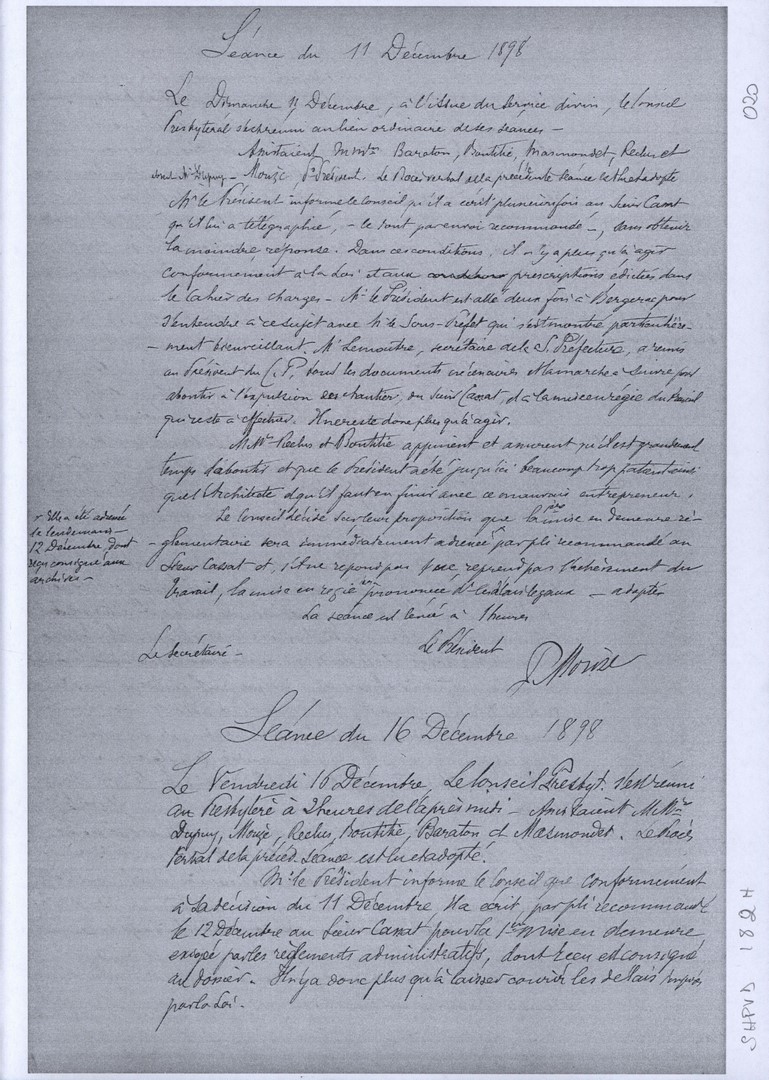 Séance du 11 Décembre 1898
Le Dimanche 11 Décembre, à l'issue du Service divin, le Conseil
Presbytéral s'est réuni au lieu ordinaire de ses séances —
Assistaient M Mrs Baraton, Bontitié, Masmondet, Reclus et
Mouzé, Pt Président. Le Procès verbal de la précédente séance est lu et adopté
Mr le Président informe le Conseil qu'il a écrit plusieurs fois au Sieur Cassat
qu'il lui a télégraphié, — le tout par envoi recommandé —, sans obtenir
la moindre réponse. Dans ces conditions, il n'y a plus qu'à agir
conformément à la Loi et aux prescriptions édictées dans
le Cahier des charges — Mr le Président est allé deux fois à Bergerac pour
s'entendre à ce sujet avec Mr le Sous-Préfet qui s'est montré particulière-
— ment bienveillant. Mr Lemoutre, secrétaire de la S. Préfecture, a remis
au Président du C. P. tous les documents nécessaires et la marche à suivre pour
aboutir à l'expulsion des chantiers, du Sieur Cassat, et à la mise en régie du travail
qui reste à effectuer. Il ne reste donc plus qu'à agir.
M Mrs Reclus et Bontitié appuient et assurent qu'il est grandement
temps d'aboutir et que le Président a été jusqu'ici beaucoup trop patient ainsi
que l'Architecte et qu'il faut en finir avec ce mauvais entrepreneur.
Le Conseil décide sur leur proposition que la 1ère mise en demeure ré-
— glementaire sera immédiatement adressée par pli recommandé au
Sieur Cassat et, s'il ne répond pas reprend pas l'achèvement du
travail, la mise en régie prononcée légaux — adopté
+ Elle a été adressée
le lendemain —
12 Décembre, dont
reçu consigné aux
archives —
La séance est levée à heures
Le Secrétaire — Le Président
P Mouze
Séance du 16 Décembre 1898
Le Vendredi 16 Décembre, Le Conseil Presbyt. s'est réuni
au Presbytère à 2 heures de l'après midi — Assistaient M Mrs
Dupuy, Mouzé, Reclus, Bontitié, Baraton et Masmondet. Le Procès
Verbal de la précéd. Séance est lu et adopté.
Mr le Président informe le Conseil que conformément
à la décision du 11 Décembre il a écrit, par pli recommandé
le 12 Décembre au Sieur Cassat pour la 1ère mise en demeure
exigée par les règlements administratifs, dont reçu est consigné
au dossier. Il n'y a donc plus qu'à laisser courir les délais
par la Loi.
020
SHPVD 182 H